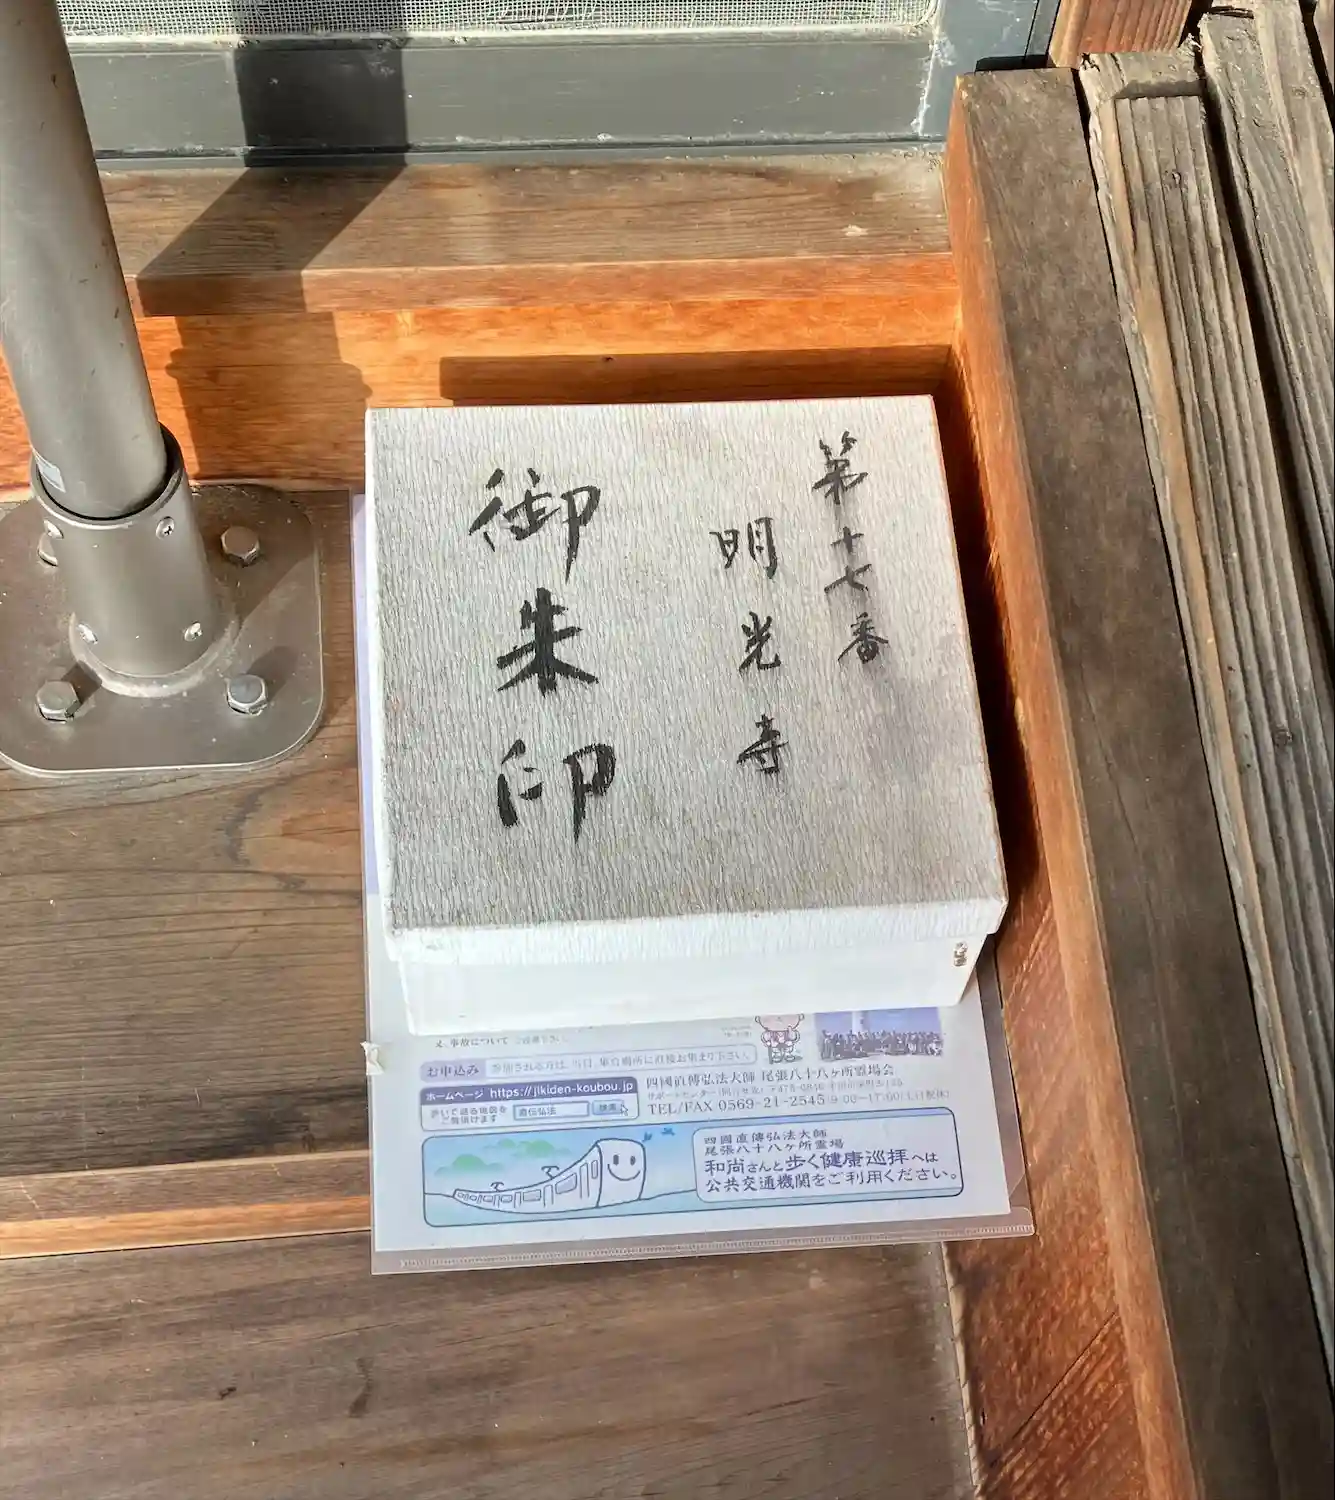 第十七番
明光寺
御朱印
え、事故について
お申込み
参加される方は、当日、集合場所に直接お集まり下さい。
ホームページ https://jikiden-koubou.jp
歩いて巡る魅力を
ご覧頂けます
直伝弘法
検索
四國直傳弘法大師 尾張八十八ヶ所霊場会
TEL/FAX 0569-21-2545
四國直傳弘法大師
尾張八十八ヶ所霊場
和尚さんと歩く健康巡拝へは
公共交通機関をご利用ください。